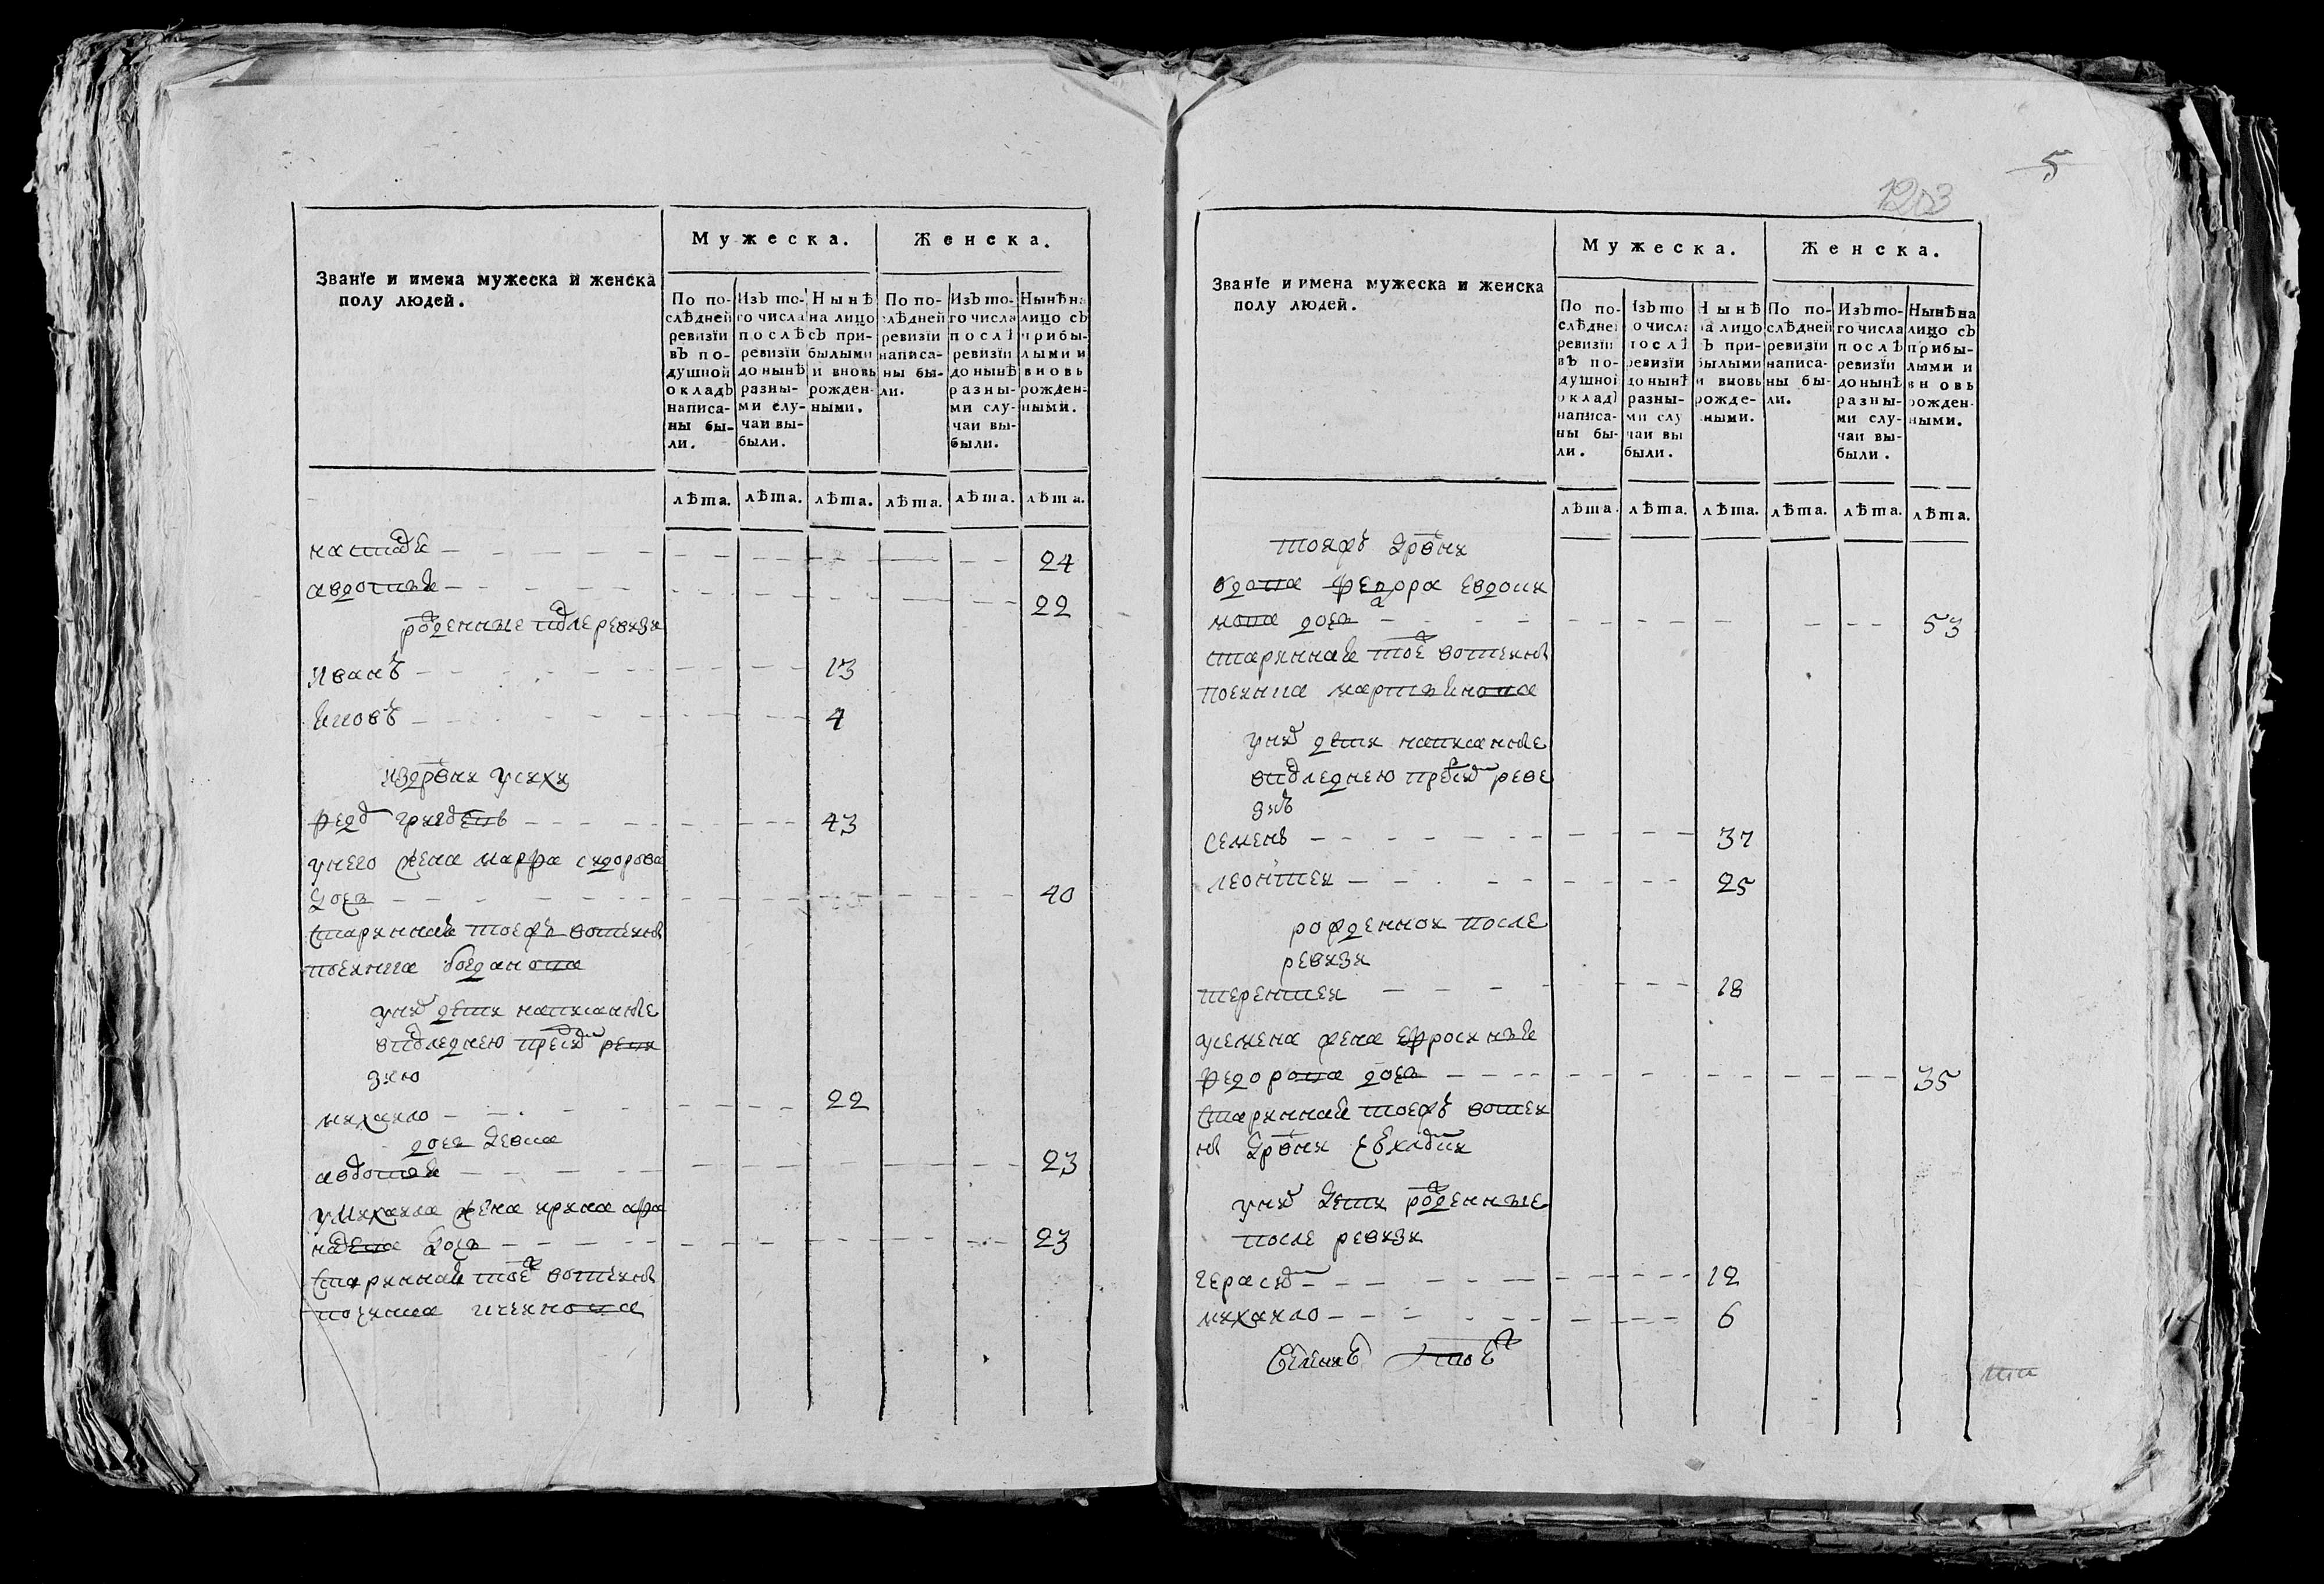 Званїе и имена мужеска и женска
полу людей.
Мужеска.
Женска.
По по-
слѣдней
ревизїи
въ по-
душной
окладъ
написа-
ны бы-
ли.
Изъ то-
го числа
послѣ
ревизїи
до нынѣ
разны-
ми слу-
чаи вы-
были.
Нынѣ
на лицо
съ при-
былыми
и вновь
рожден-
ными.
По по-
слѣдней
ревизїи
написа-
ны бы-
ли.
Изъ то-
го числа
послѣ
ревизїи
до нынѣ
разны-
ми слу-
чаи вы-
были.
Нынѣ на
лицо съ
прибы-
лыми и
вновь
рожден-
ными.
лѣта. лѣта. лѣта. лѣта. лѣта. лѣта.
24
авдотья 22
рожденные после ревизи
иванъ 13
яковъ 4
издрвни
федо 43
унего жена марфа сидорова
дочь 40
старинная тоежъ вотчины
поимка богданова
унихъ дети написанные
впоследнею пресихъ реви
зию
михаило 22
дочь девка
авдотья 23
умихаила жена ирина афа
дочь 23
старинная тоеж вотчины
5
1203
Званїе и имена мужеска и женска
полу людей.
Мужеска.
Женска.
По по-
слѣдней
ревизїи
въ по-
душной
окладъ
написа-
ны бы-
ли.
Изъ то
го числа
послѣ
ревизїи
до нынѣ
разны-
ми слу
чаи вы
были.
Нынѣ
на лицо
съ при-
былыми
и вновь
рожде-
ными.
По по-
слѣдней
ревизїи
написа-
ны бы-
ли.
Изъ то-
го числа
послѣ
ревизїи
до нынѣ
разны-
ми слу-
чаи вы-
были.
Нынѣ на
лицо съ
прибы-
лыми и
вновь
рожден-
ными.
лѣта. лѣта. лѣта. лѣта. лѣта. лѣта.
тояжъ дрвни
вдова федора евдоки
мова дочь 53
старинная тоеж вотчины
мартьянова
унихъ дети написанные
впоследнею пресихъ реве
зиъ
семенъ 37
леонтеи 25
рожденнои после
ревизи
терентеи 18
усемена жена ефросинья
федорова дочь 35
старинная тоежъ вотчи
нъ дрвни
унихъ дети рожденные
после ревизи
герасим 12
михаило 6